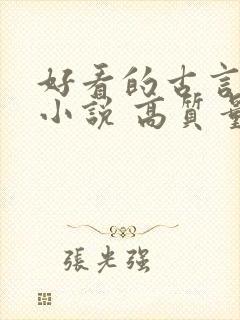 好看的古言
小説 高質量
張光强